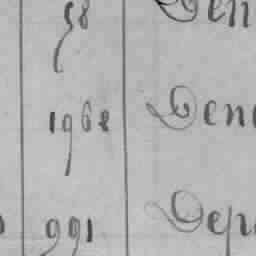 58 Den
1968 Den
991 Dep